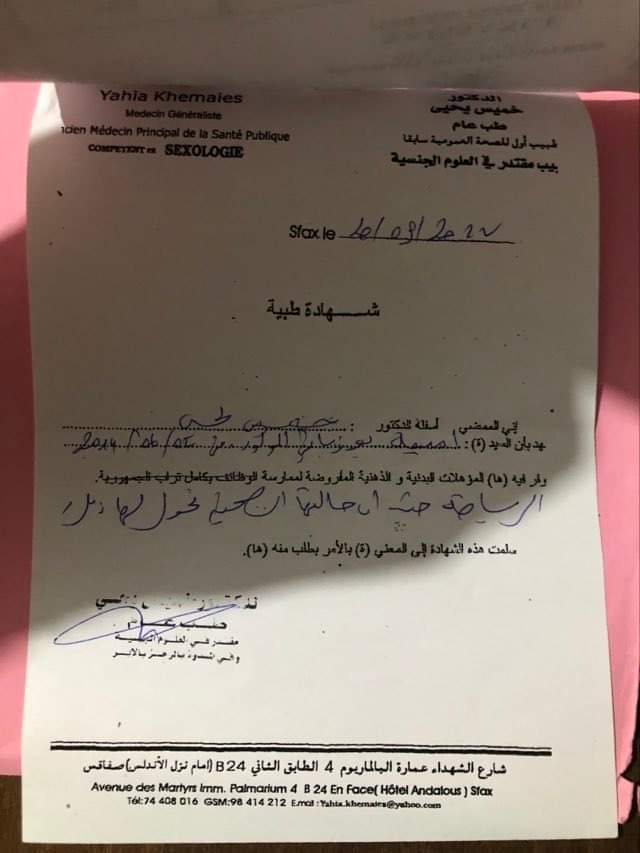 Yahia Khemaies
Medecin Généraliste
ncien Médecin Principal de la Santé Publique
COMPETENT en SEXOLOGIE
الدكتور
خميس يحيى
طب عام
طبيب أول للصحة العمومية سابقا
بيب مقتدر في العلوم الجنسية
Sfax le
شـــهادة طبية
إني الممضي أسفله الدكتور :
هد بأن السيد (ة) :
وفر فيه (ها) المؤهلات البدنية و الذهنية المفروضة لممارسة الوظائف بكامل تراب الجمهورية.
الرياضة حيث أن حالتها الصحية تخول لها ذلك
سلمت هذه الشهادة إلى المعني (ة) بالأمر بطلب منه (ها).
شارع الشهداء عمارة البالماريوم 4 الطابق الثاني B 24 (امام نزل الأندلس) صفاقس
Avenue des Martyrs Imm. Palmarium 4 B 24 En Face( Hôtel Andalous ) Sfax
Tél:74 408 016 GSM:98 414 212 Email :Yahia.khemaies@yahoo.com